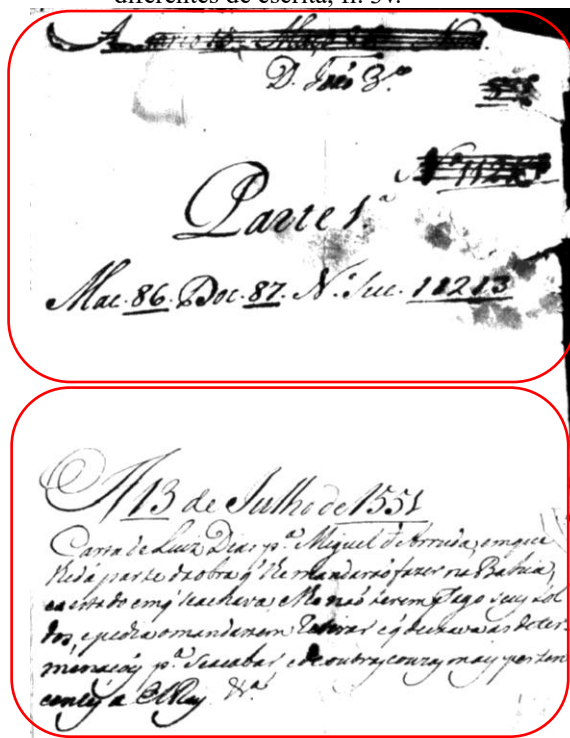 diferentes de escrita, fl. 3v.
D. João 3.º
Parte 1.ª
Mac. 86. Doc. 87. N.º Suc. 11213
A 13 de Julho de 1551
Carta de Luiz Dias p.ª Miguel d'Arruda, em que
lhe dá parte da obra q' lhe mandarão fazer na Bahia,
e o estado em q' se achava, e lhe não serem pago seus sol
dos, e pedia o mandarem retirar e q' as deter
minaçoẽs p.ª se acabar e de outras couzas mais perten
centes a El Rey &.ª